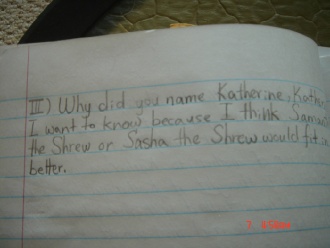 III) Why did you name Katherine, Kathe
I want to know because I think Samu
the Shrew or Sasha the Shrew would fit in
better.